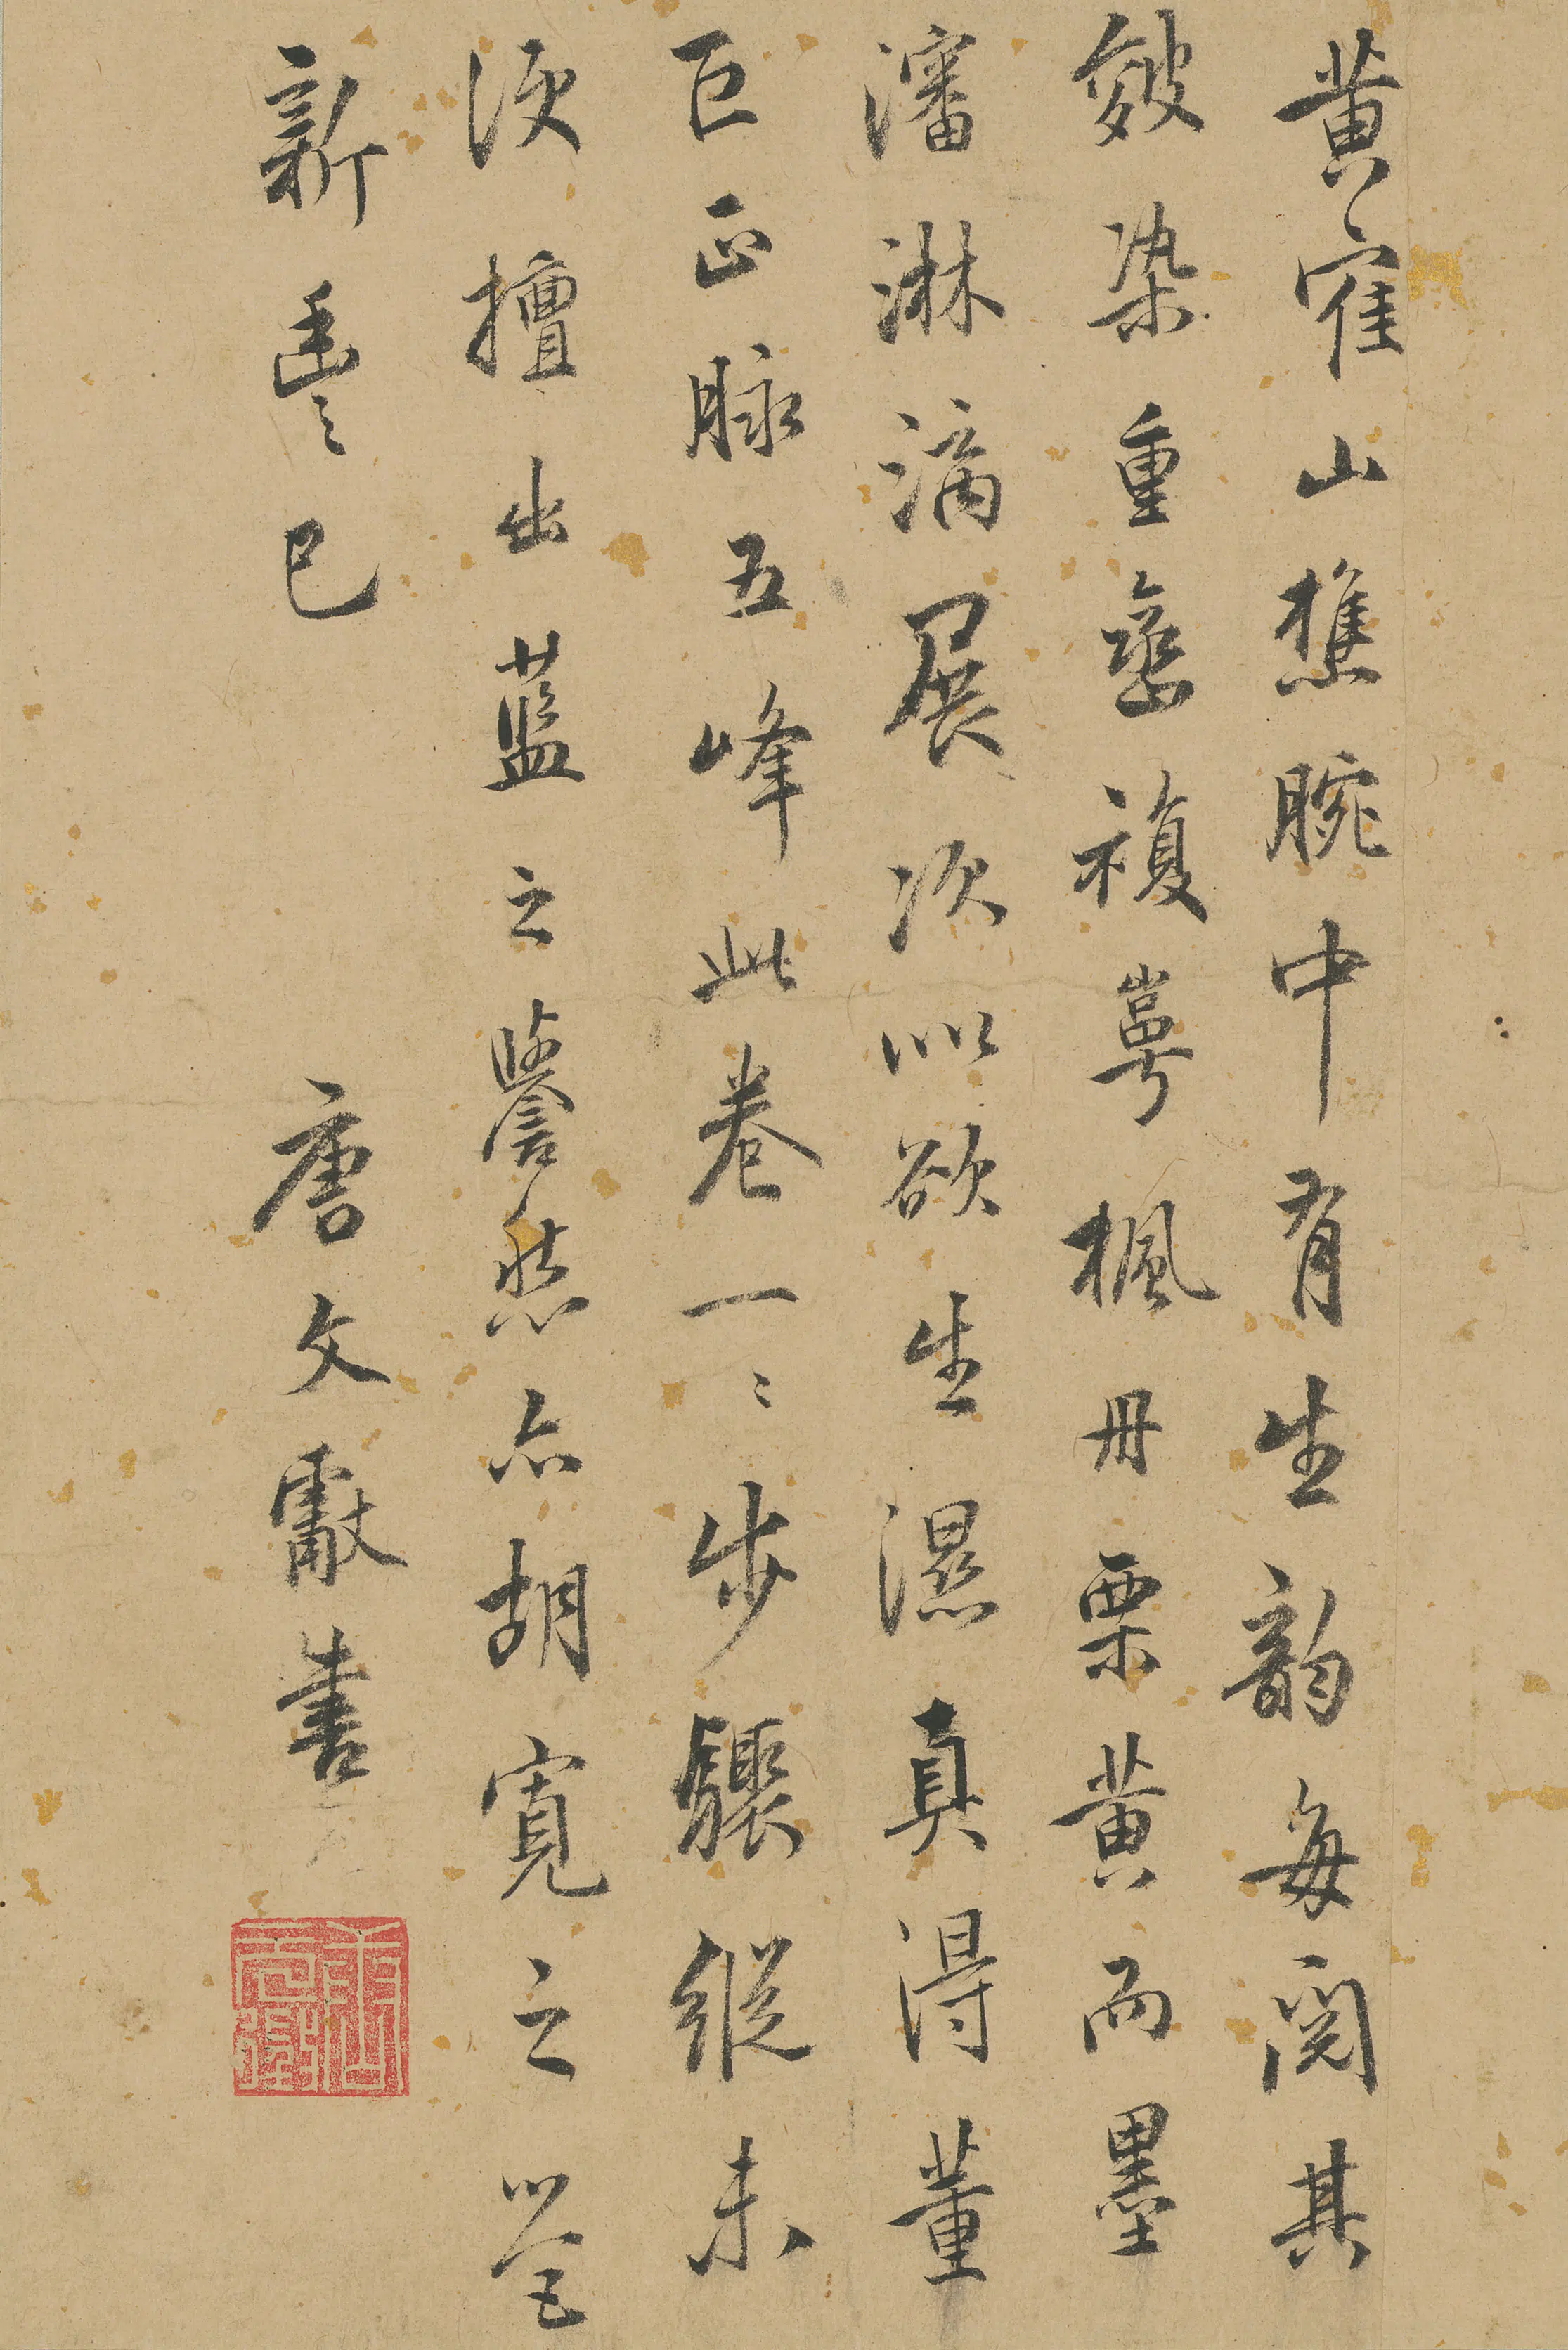 黄寉山樵腕中有生韵每閱其
皴染重巒複崿楓丹栗黄而墨
瀋淋漓展次似欲生濕真得董
巨正脉五峰此卷一〻步驟縱未
便擅出藍之譽然亦胡寬之營
新豐已　唐文獻書